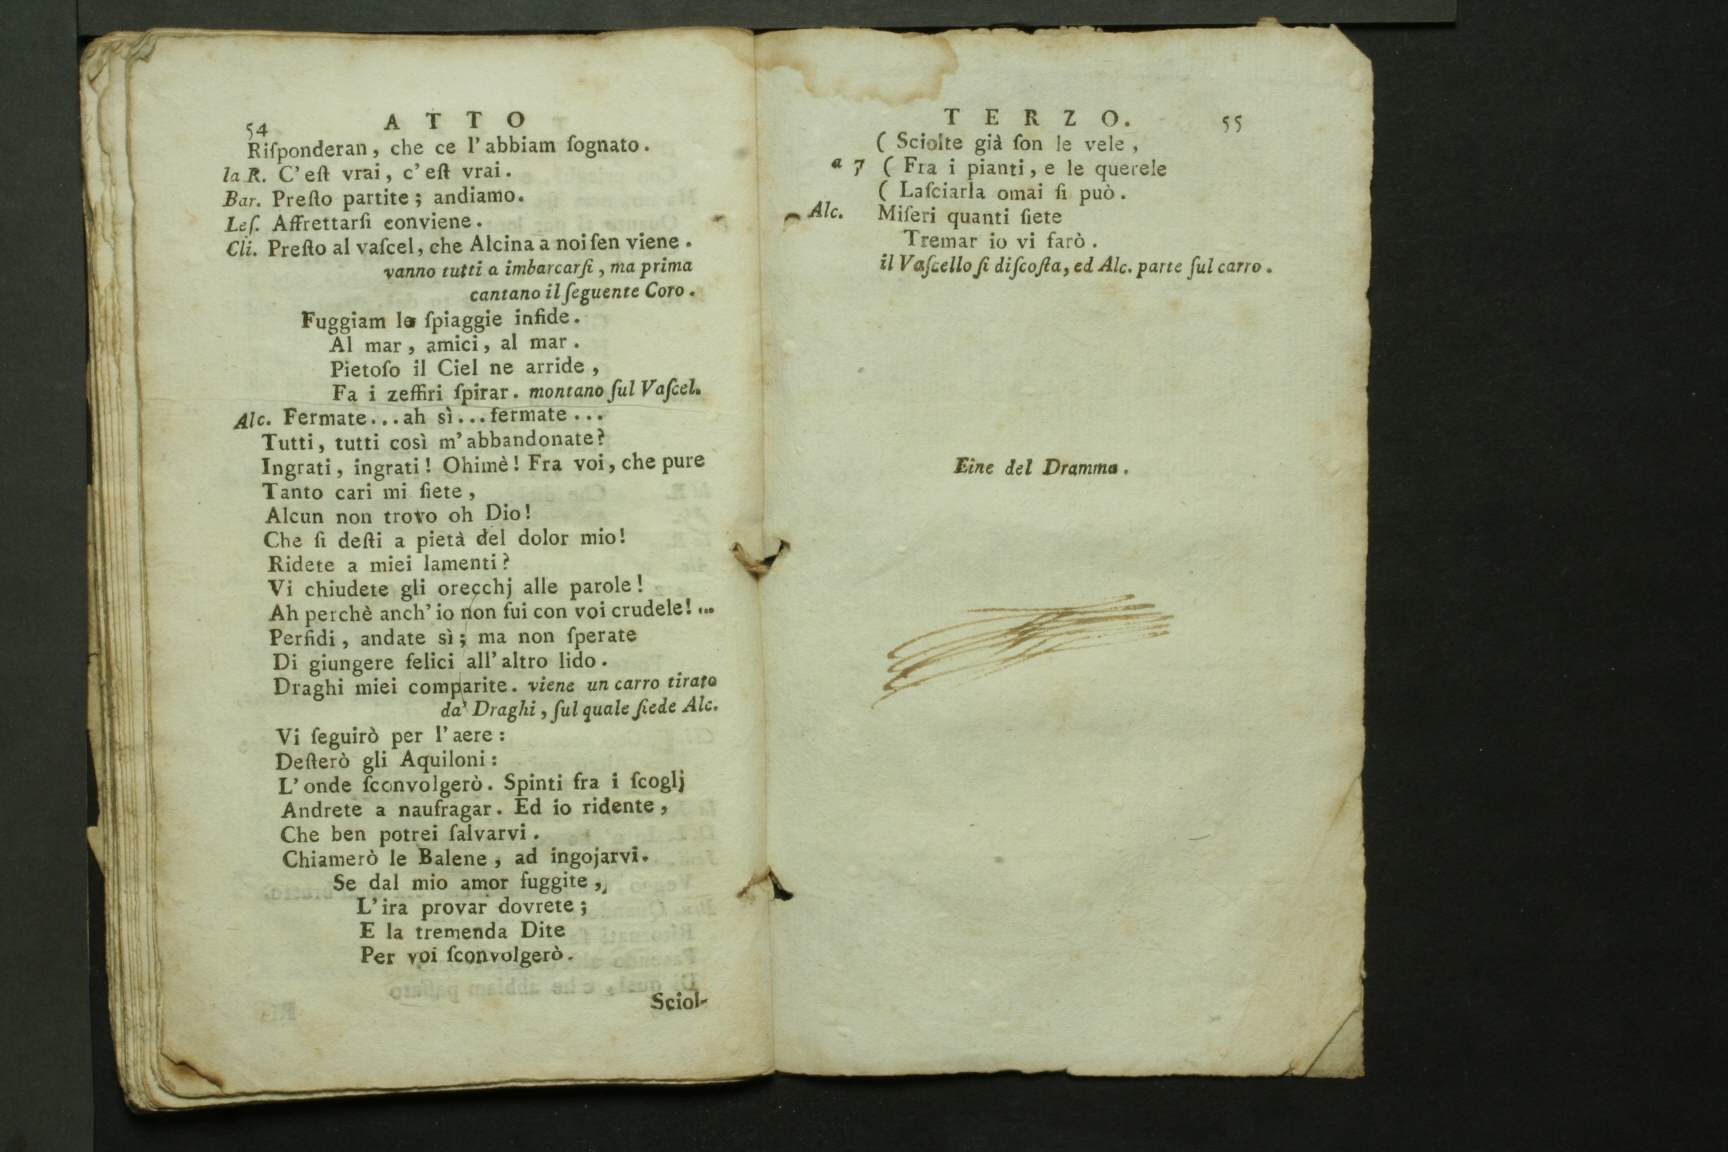 54 ATTO
Riſponderan, che ce l'abbiam ſognato.
la R. C'eſt vrai, c'eſt vrai.
Bar. Preſto partite; andiamo.
Leſ. Affrettarſi conviene.
Cli. Preſto al vaſcel, che Alcina a noi ſen viene.
vanno tutti a imbarcarſi, ma prima
cantano il ſeguente Coro.
Fuggiam le ſpiaggie infide.
Al mar, amici, al mar.
Pietoſo il Ciel ne arride,
Fa i zeffiri ſpirar. montano ſul Vaſcel.
Alc. Fermate...ah sì...fermate...
Tutti, tutti così m'abbandonate?
Ingrati, ingrati! Ohimè! Fra voi, che pure
Tanto cari mi ſiete,
Alcun non trovo oh Dio!
Che ſi deſti a pietà del dolor mio!
Ridete a miei lamenti?
Vi chiudete gli orecchj alle parole!
Ah perchè anch'io non fui con voi crudele!...
Perfidi, andate sì; ma non ſperate
Di giungere felici all'altro lido.
Draghi miei comparite. viene un carro tirato
da' Draghi, ſul quale ſiede Alc.
Vi ſeguirò per l'aere:
Deſterò gli Aquiloni:
L'onde ſconvolgerò. Spinti fra i ſcoglj
Andrete a naufragar. Ed io ridente,
Che ben potrei ſalvarvi.
Chiamerò le Balene, ad ingojarvi.
Se dal mio amor fuggite,
L'ira provar dovrete;
E la tremenda Dite
Per voi ſconvolgerò.
Sciol-
TERZO. 55
( Sciolte già ſon le vele,
a 7 ( Fra i pianti, e le querele
( Laſciarla omai ſi può.
Alc. Miſeri quanti ſiete
Tremar io vi farò.
il Vaſcello ſi diſcoſta, ed Alc. parte ſul carro.
Eine del Dramma.